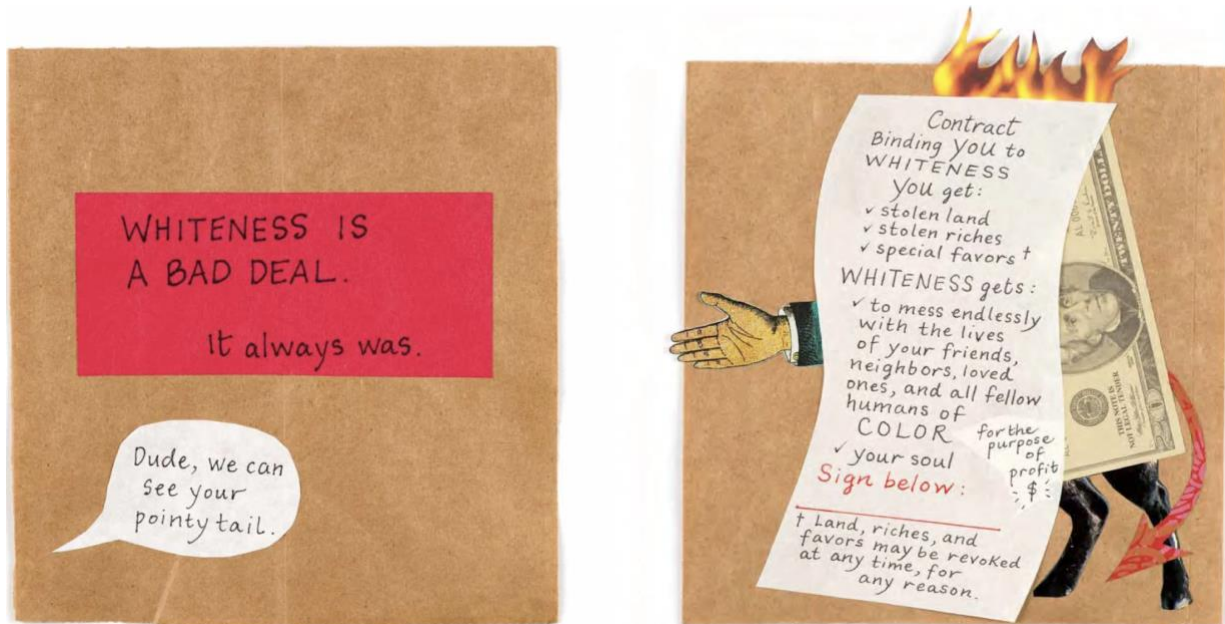 WHITENESS IS
A BAD DEAL.
It always was.
Dude, we can
see your
pointy tail.
Contract
Binding YOU to
WHITENESS
You get:
✓ stolen land
✓ stolen riches
✓ special favors †
WHITENESS gets:
✓ to mess endlessly
with the lives
of your friends,
neighbors, loved
ones, and all fellow
humans of
COLOR
for the
purpose
of
profit
$
✓ your soul
Sign below:
† Land, riches, and
favors may be revoked
at any time, for
any reason.
TWENTY DOLLA
THIS NOTE IS
NOT LEGAL TENDER
20